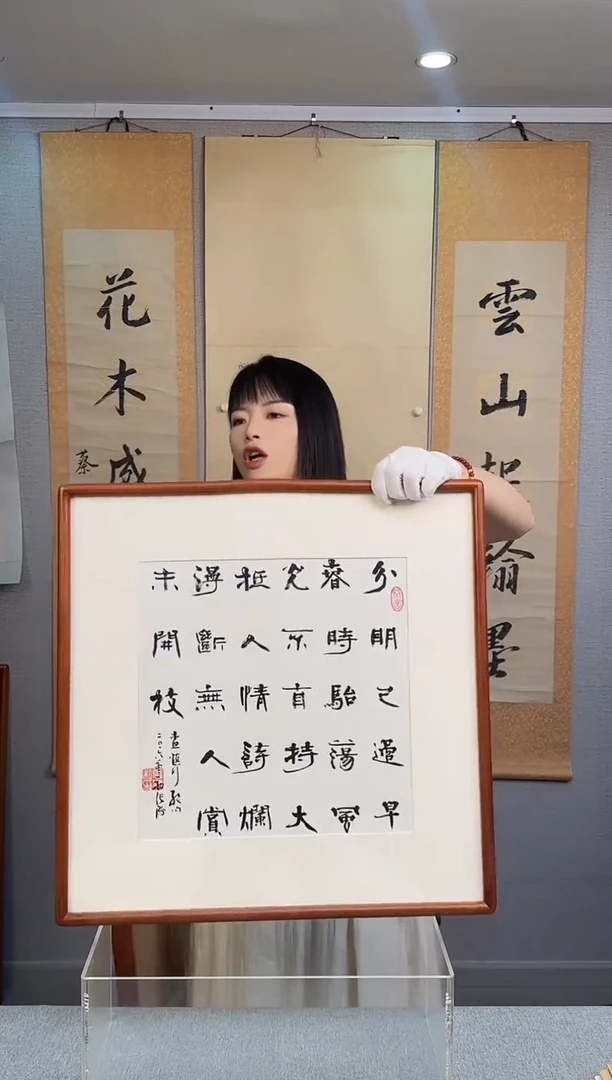 雲山起翰墨
花木成
蔡
分明已過早
春時駘蕩風
光不自持大
抵人情誇爛
漫斷無人賞
未開枝
查慎行